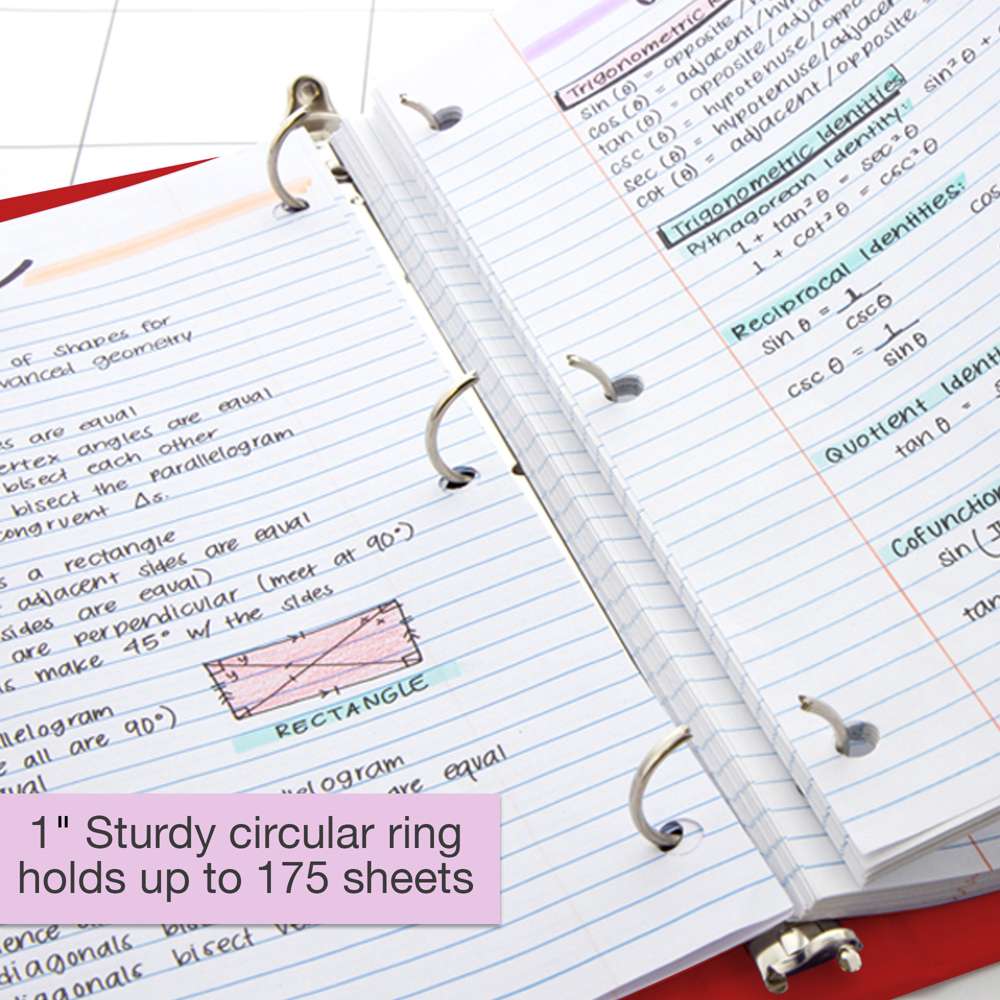 of shapes for
vanced geometry
es are equal
ertex angles are equal
bisect each other
bisect the parallelogram
congruent Δs.
s a rectangle
adjacent sides are equal
sides are equal)
are perpendicular (meet at 90°)
make 45° w/ the sides
y
y
x
x
RECTANGLE
llelogram
all are 90°)
logram
are equal
1" Sturdy circular ring
holds up to 175 sheets
diagonals
diagonals bisect
Trigonometric
sin (θ) = opposite/
cos (θ) = adjacent/hy
tan (θ) = opposite/adja
csc (θ) = hypotenuse/oppo
sec (θ) = hypotenuse/adjacen
cot (θ) = adjacent/opposite
Trigonometric Identities
Pythagorean Identity:
sin²θ +
1 + tan²θ = sec²θ
1 + cot²θ = csc²θ
Reciprocal Identities:
sin θ = 1
cscθ
cos
csc θ = 1
sinθ
Quotient Identi
tan θ =
Cofunction
sin (
tan